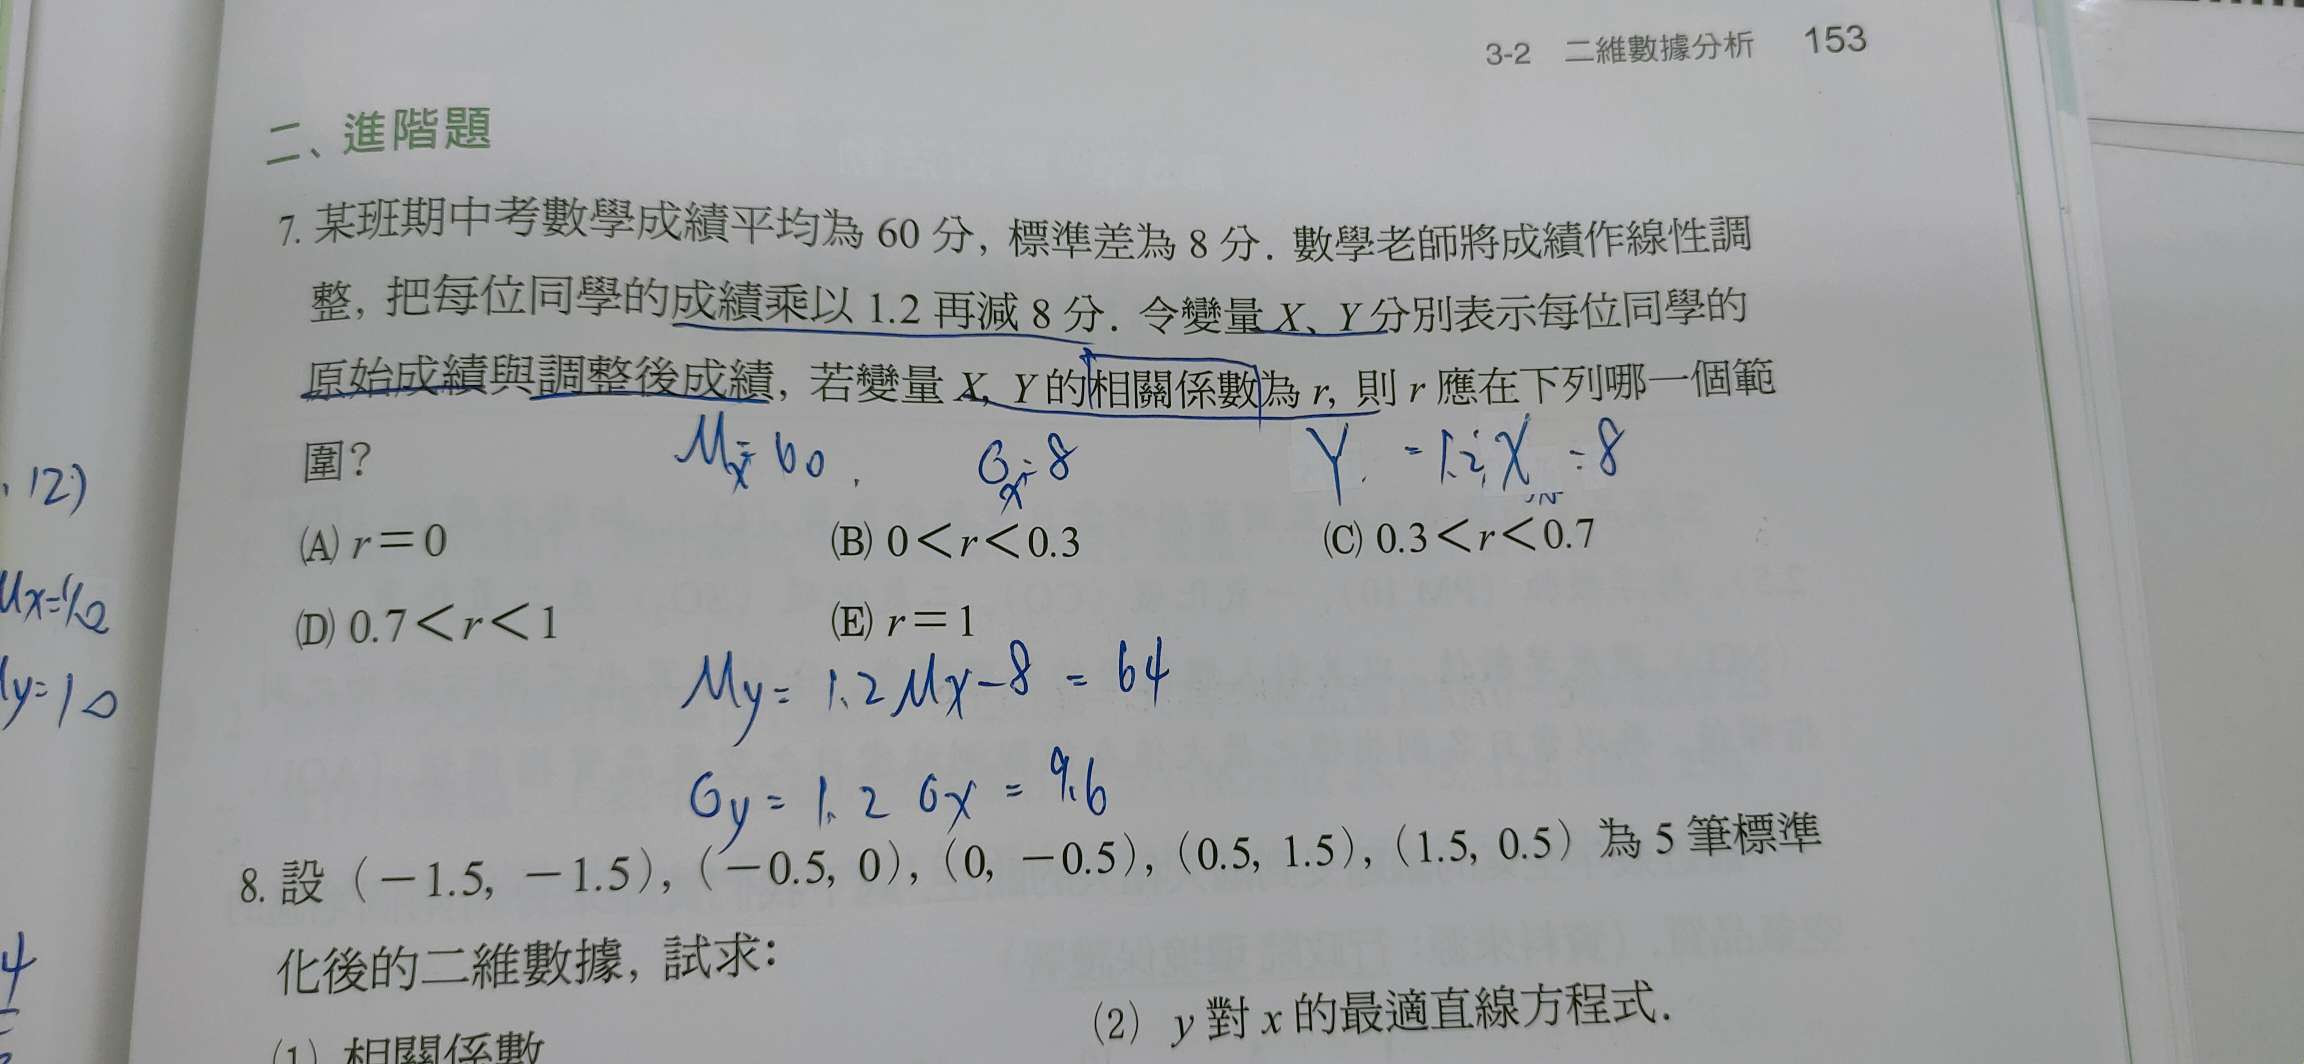 3-2 二維數據分析 153
二、進階題
7. 某班期中考數學成績平均為 60 分, 標準差為 8 分. 數學老師將成績作線性調
整, 把每位同學的成績乘以 1.2 再減 8 分. 令變量 X、Y 分別表示每位同學的
原始成績與調整後成績, 若變量 X, Y 的相關係數為 r, 則 r 應在下列哪一個範
圍?
Mx=60, σx=8 Y = 1.2 X - 8
(A) r=0 (B) 0<r<0.3 (C) 0.3<r<0.7
(D) 0.7<r<1 (E) r=1
My = 1.2Mx-8 = 64
σy = 1.2 σx = 9.6
8. 設 (-1.5, -1.5), (-0.5, 0), (0, -0.5), (0.5, 1.5), (1.5, 0.5) 為 5 筆標準
化後的二維數據, 試求:
(1) 相關係數 (2) y 對 x 的最適直線方程式.
12)
y=10
4